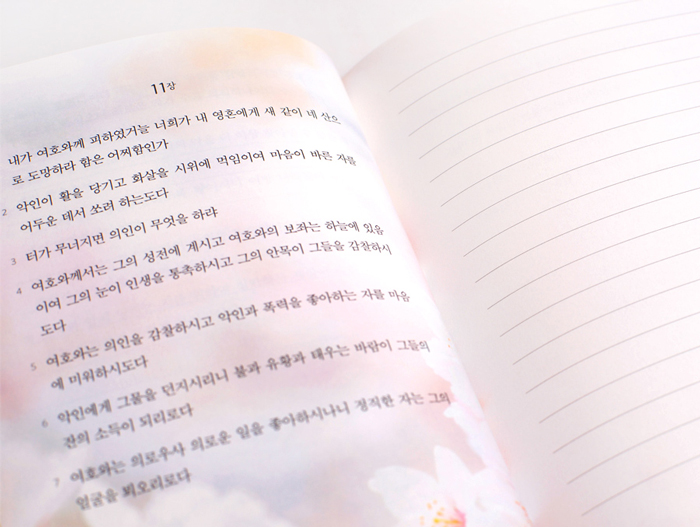 11장
내가 여호와께 피하였거늘 너희가 내 영혼에게 새 같이 네 산으
로 도망하라 함은 어찌함인가
2 악인이 활을 당기고 화살을 시위에 먹임이여 마음이 바른 자를
어두운 데서 쏘려 하는도다
3 터가 무너지면 의인이 무엇을 하랴
4 여호와께서는 그의 성전에 계시고 여호와의 보좌는 하늘에 있음
이여 그의 눈이 인생을 통촉하시고 그의 안목이 그들을 감찰하시
도다
5 여호와는 의인을 감찰하시고 악인과 폭력을 좋아하는 자를 마음
에 미워하시도다
6 악인에게 그물을 던지시리니 불과 유황과 태우는 바람이 그들의
잔의 소득이 되리로다
7 여호와는 의로우사 의로운 일을 좋아하시나니 정직한 자는 그의
얼굴을 뵈오리로다